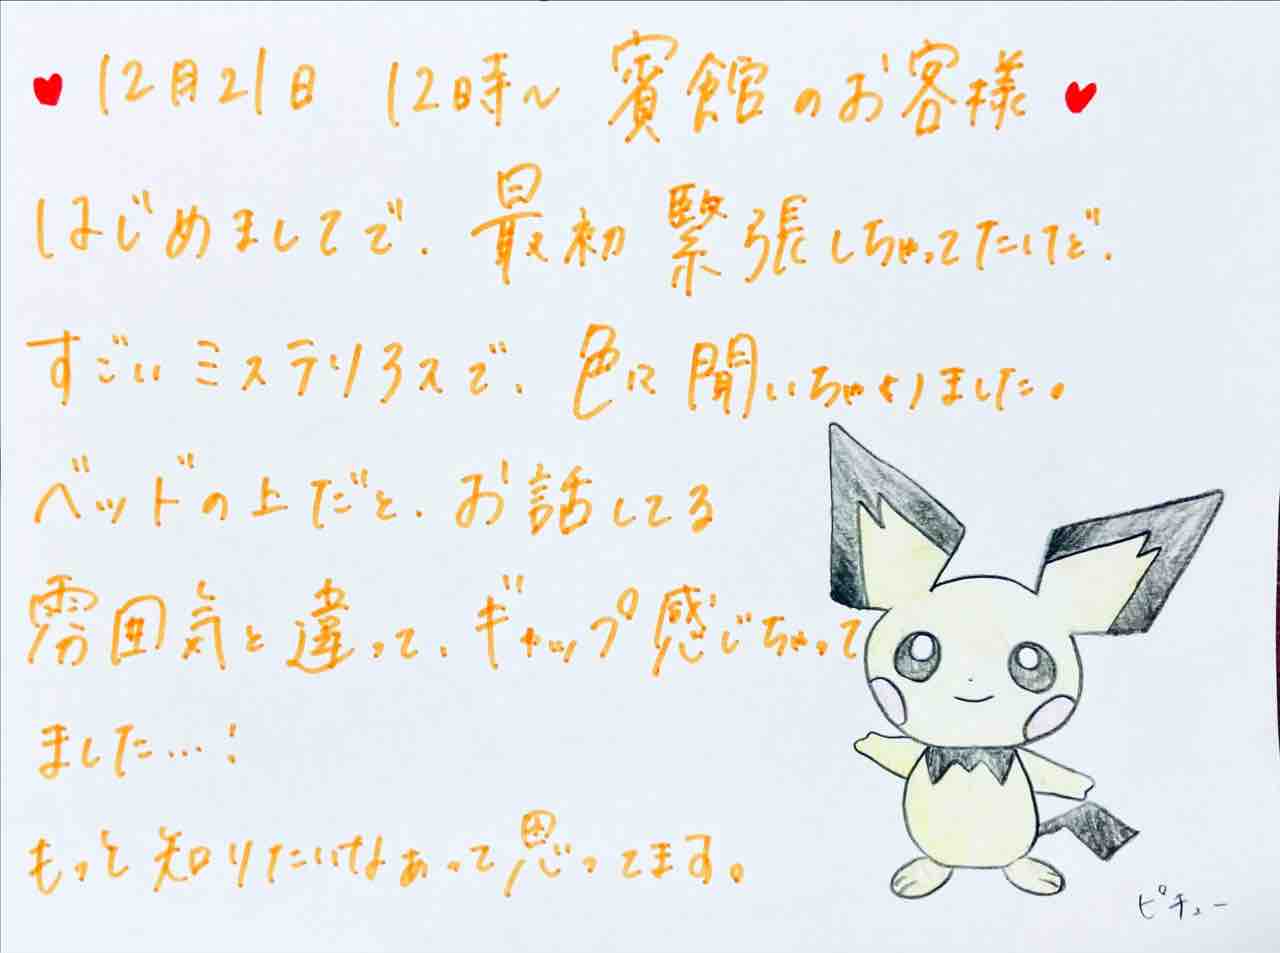 ♥12月21日 12時〜 賓館のお客様♥
はじめましてで、最初 緊張しちゃってたけど、
すごいミステリアスで、色々聞いちゃいました。
ベッドの上だと、お話してる
雰囲気と違って、ギャップ感じちゃって
ました…!
もっと知りたいなぁって思ってます。
ピチュー